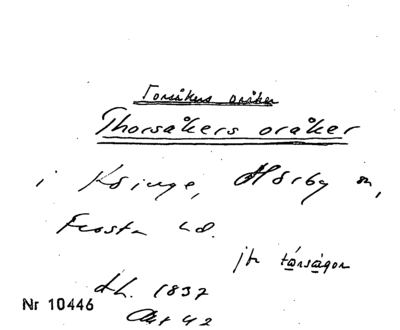 Torsåkers oråker
Thorsåkers oråker
i Köinge, Hörby sn,
Frosta hd.
jfr tårságor
Lh. 1837
Akt 42
Nr 10446